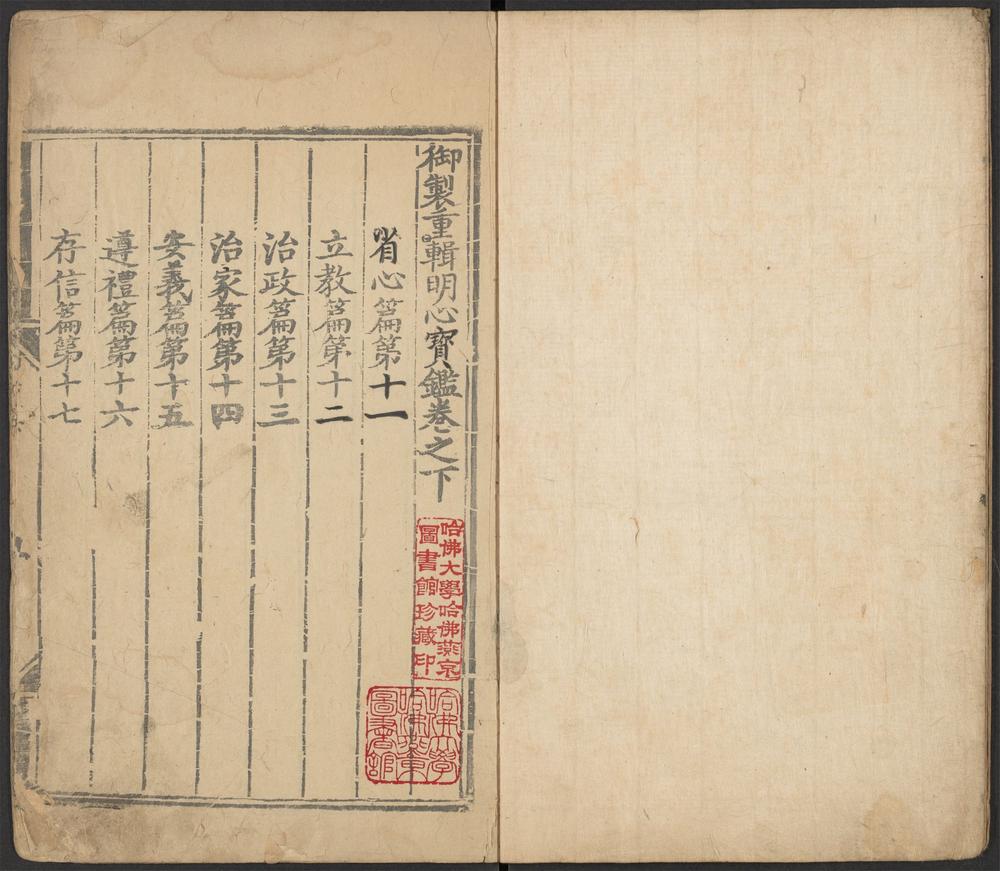 御製重輯明心寶鑑卷之下
省心篇第十一
立教篇第十二
治政篇第十三
治家篇第十四
安義篇第十五
遵禮篇第十六
存信篇第十七
哈佛大學哈佛燕京
圖書館珍藏印
哈佛大學
哈佛燕京
圖書館